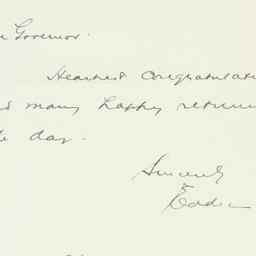 Governor.
Heartiest Congratulati
many happy return
day.
Sincerely